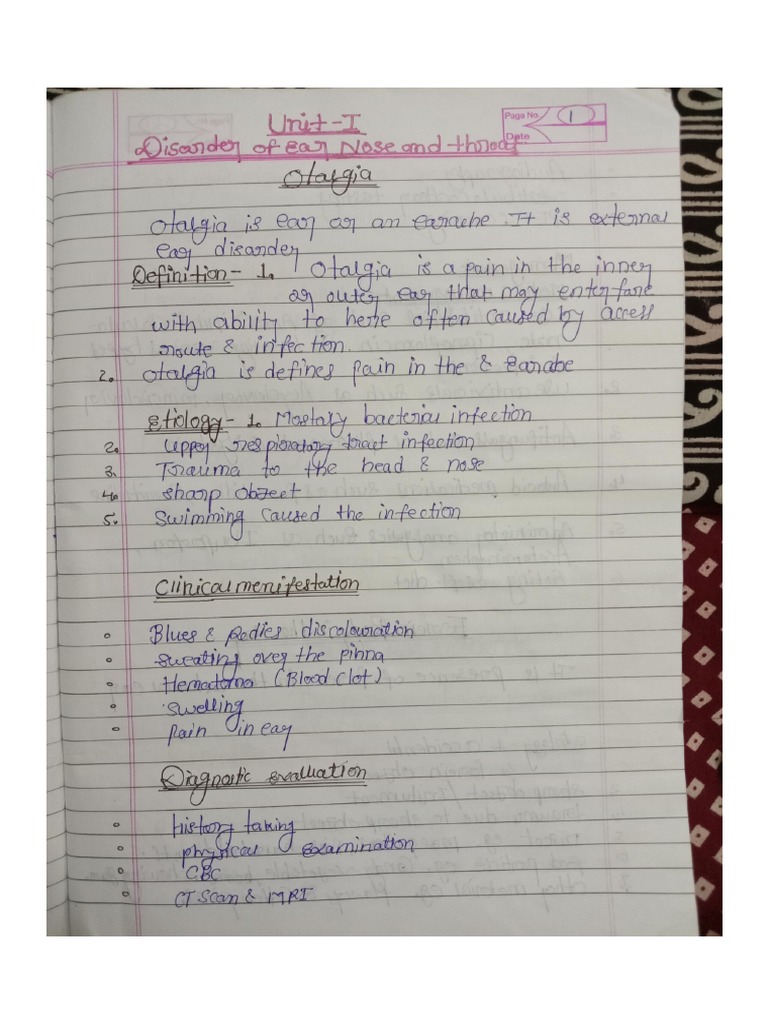 Page No. 1
Date
Unit-I
Disorder of ear Nose and throat
Otalgia
Otalgia is ear or an earache. It is external
ear disorder
Definition - 1. Otalgia is a pain in the inner
or outer ear that may enterfare
with ability to here often caused by access
route & infection.
2. Otalgia is defines pain in the & Earabe
Etiology - 1. Mostary bacterial infection
2. upper respiratory tract infection
3. Trauma to the head & nose
4. sharp object
5. Swimming caused the infection
Clinical menifestation
Blues & Redies discolouration
Sweating over the pinna
Hematoma (Blood clot)
Swelling
Pain in ear
Diagnostic evaluation
History taking
physical examination
CBC
CT Scan & MRI